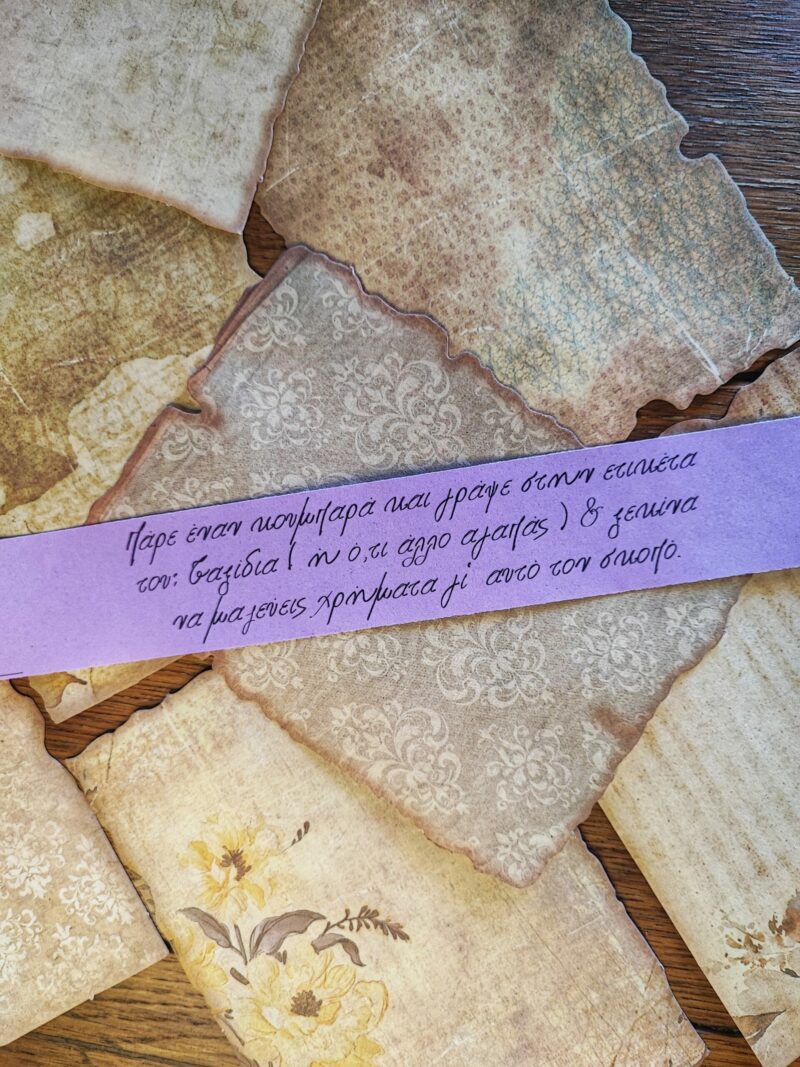 Πάρε έναν κουμπαρά και γράψε στην ετικέτα
του: Ταξίδια ( ή ό,τι άλλο αγαπάς ) & ξεκίνα
να μαζεύεις χρήματα γι' αυτό τον σκοπό.